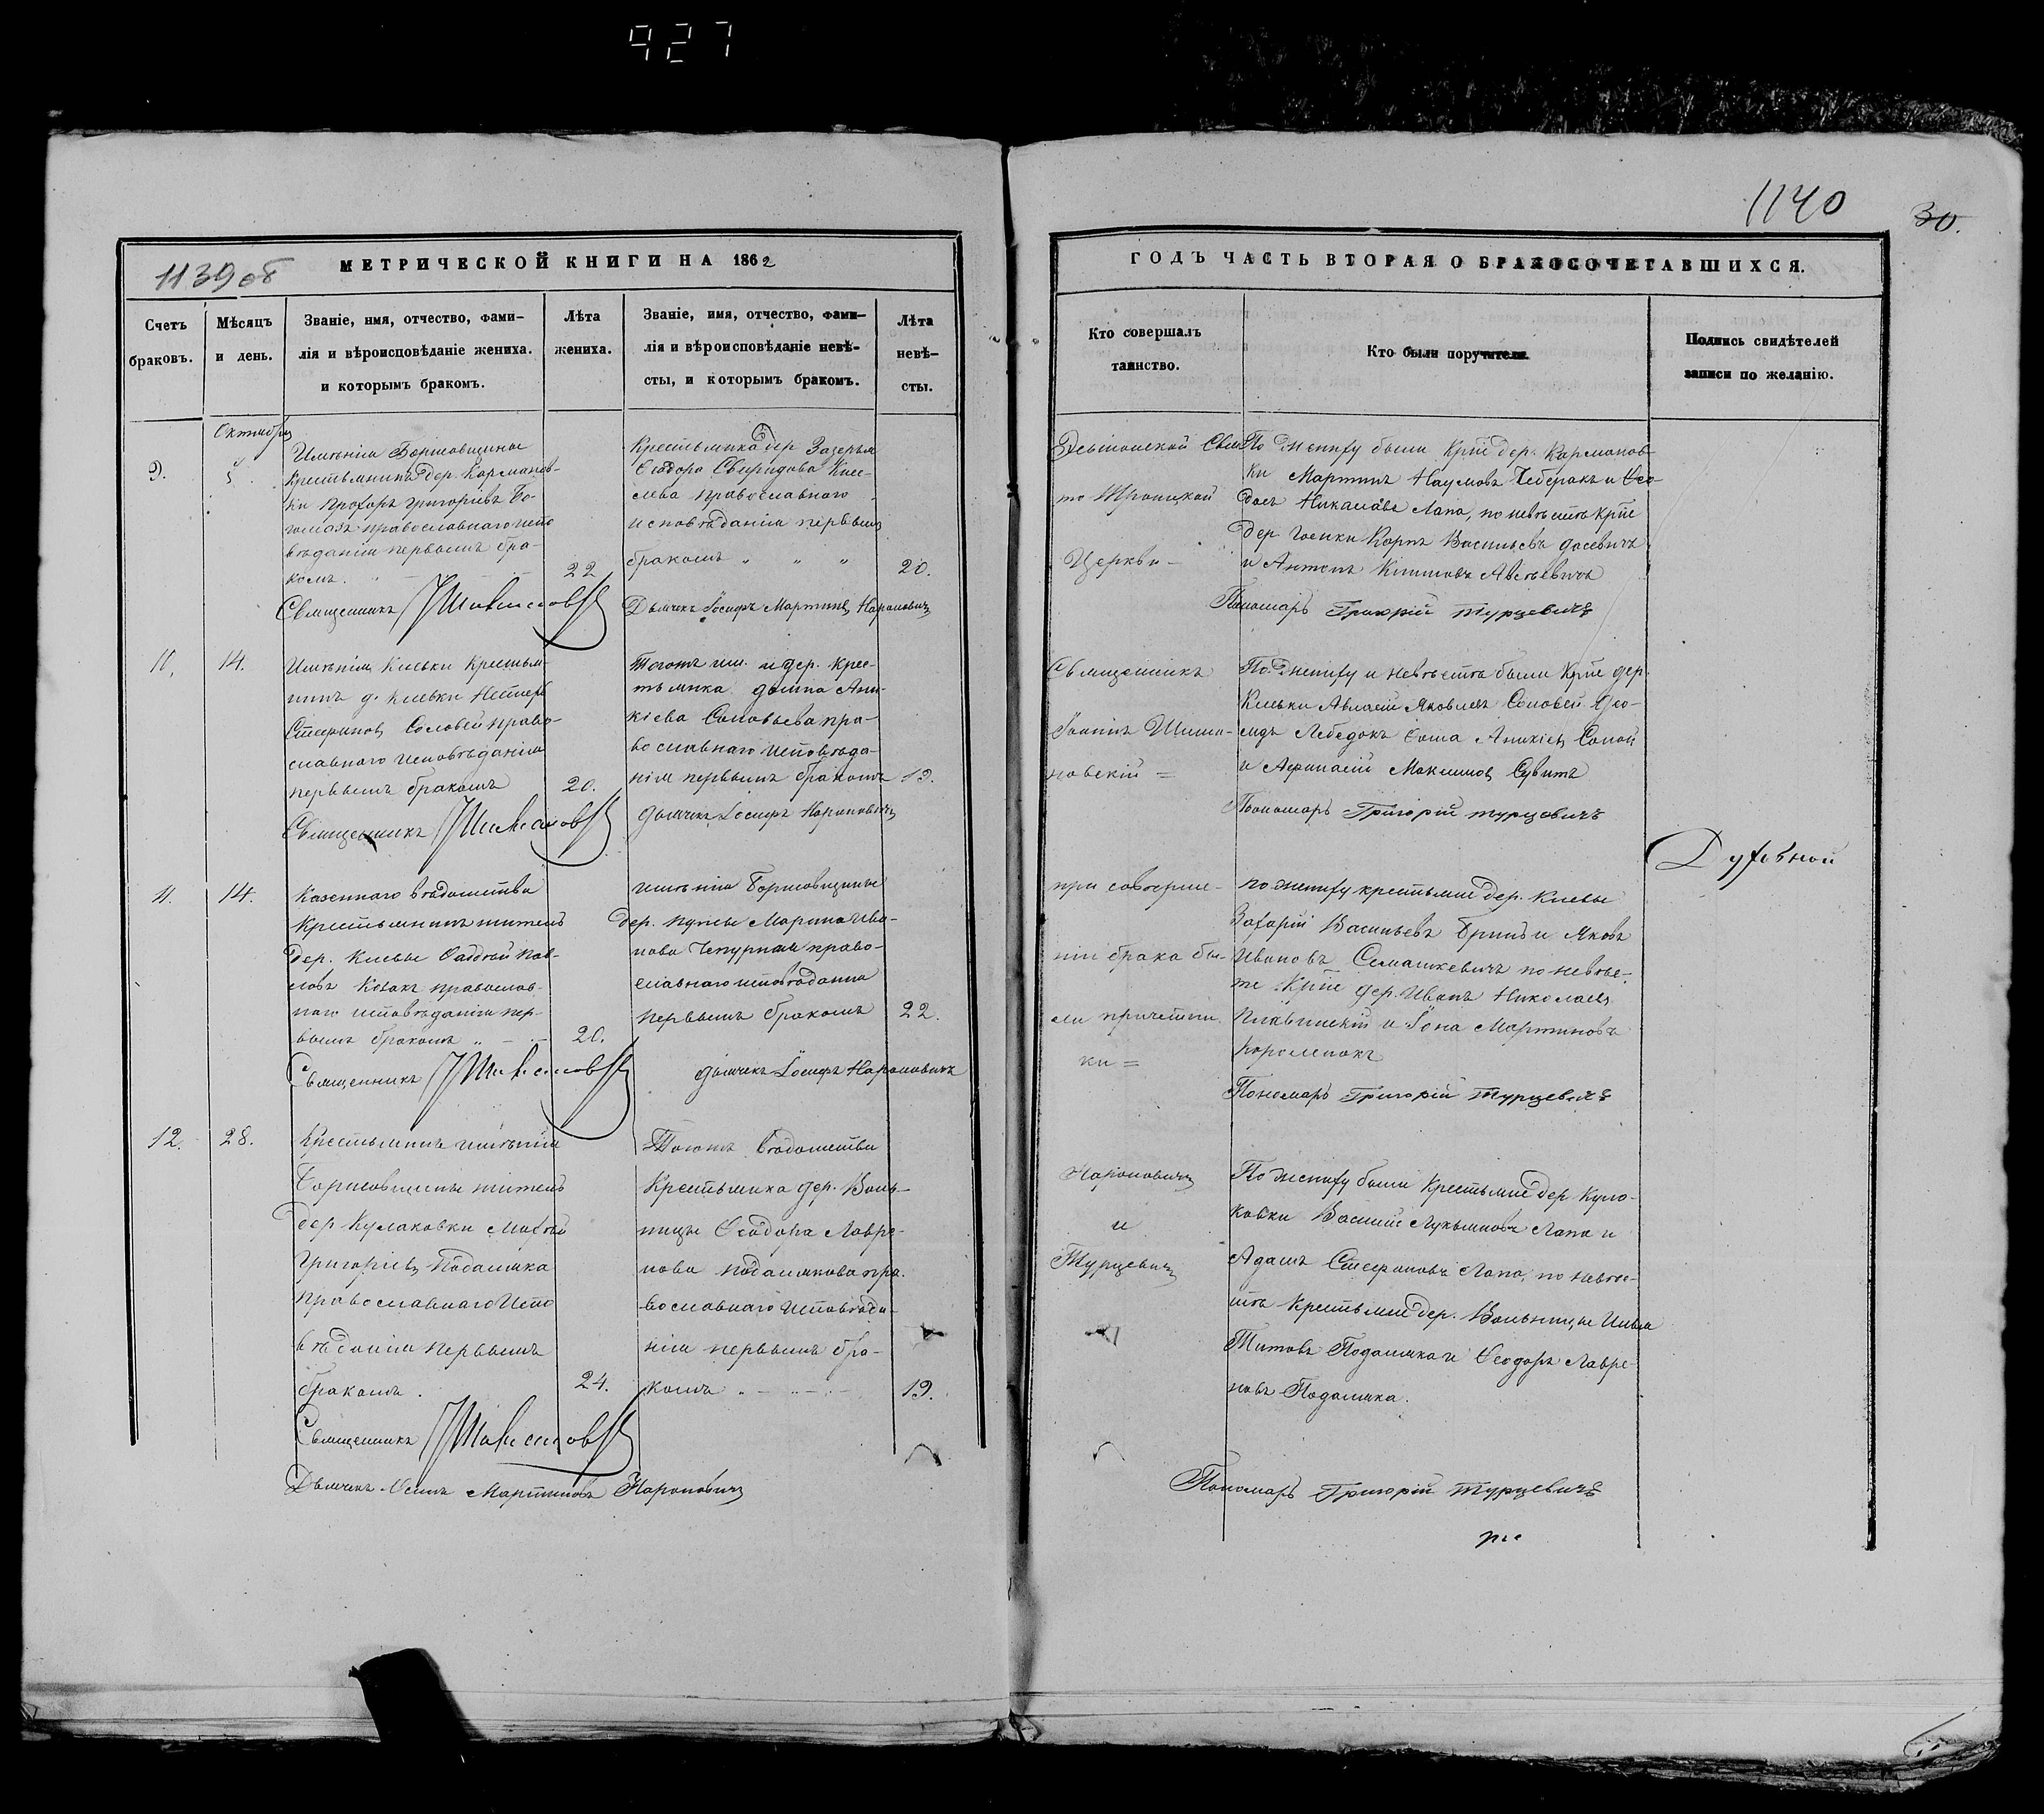 927
1139 об
МЕТРИЧЕСКОЙ КНИГИ НА 1862
Счетъ браковъ.
Мѣсяцъ и день.
Званіе, имя, отчество, фами-
лія и вѣроисповѣданіе жениха.
и которымъ бракомъ.
Лѣта жениха.
Званіе, имя, отчество, фами-
лія и вѣроисповѣданіе невѣ-
сты, и которымъ бракомъ.
Лѣта
невѣ-
сты.
Октября
9.
5.
Имѣнія Борисовщины
крестьянинъ дер. Карманов-
ки Прохоръ Григорьевъ
православнаго испо
вѣданія первымъ бра-
комъ.
22
Крестьянка дер Зазерья
Ѳеодора Свиридова Кисе-
лева православнаго
исповѣданія первымъ
бракомъ " " "
20.
Священникъ
Дьячекъ Іосифъ Мартиновъ Нароновичъ
10,
14.
Имѣнія Киевки крестья-
нинъ д. Киевки Нестеръ
Стефановъ Соловей право-
славнаго исповѣданія
первымъ бракомъ
20.
Тогожъ им. и дер. крес-
тьянка Домна Ани-
кіева Соловьева пра-
вославнаго исповѣда-
нія первымъ бракомъ
19.
Священникъ
Дьячекъ Іосифъ Нароновичъ
11.
14.
Казеннаго вѣдомства
крестьянинъ житель
дер. Киевы Фаддей Пав-
ловъ Козакъ православ-
наго исповѣданія пер-
вымъ бракомъ "
20.
имѣнія Борисовщины
дер. Марина Ива-
нова Чепурная право-
славнаго исповѣданія
первымъ бракомъ
22.
Священникъ
Дьячекъ Іосифъ Нароновичъ
12.
28.
Крестьянинъ имѣнія
Борисовщины житель
дер Кулаковки Матвей
Григорьевъ Подаляка
православнаго испо
вѣданія первымъ
бракомъ.
24.
Тогожъ вѣдомства
крестьянка дер. Воль-
ницы Ѳеодора Лавре-
нова Подалякова пра-
вославнаго исповѣда-
нія первымъ бра-
комъ
19.
Священникъ
Дьячекъ Осипъ Мартиновъ Нароновичъ
1140
30.
ГОДЪ ЧАСТЬ ВТОРАЯ О БРАКОСОЧЕТАВШИХСЯ.
Кто совершалъ
таинство.
Кто были поручители
Подпись свидѣтелей
записи по желанію.
Свя
то Троицкой
Церкви -
По жениху были Крне дер. Карманов-
ки Мартинъ Наумовъ Чеберакъ и Ѳео-
досъ Николаевъ Лапа, по невѣстѣ Крне
дер Карпъ Васильевъ
и Антонъ Климовъ
Пономарь Григорій Турцевичъ
Священникъ
Іоаннъ Шима-
новскій =
По жениху и невѣстѣ были Крне дер.
Киевки Яковлевъ Соловей
Лебедокъ Аникіевъ
и Афанасій Максимовъ
Пономарь Григорій Турцевичъ
Духовной
при соверше-
ніи брака бы-
ли причетни
ки =
по жениху крестьяне дер. Киевы
Захарій Васильевъ и Яковъ
Ивановъ Семашкевичъ по невѣс-
те Крне дер. Иванъ Николаевъ
и Іона Мартиновъ
Пономарь Григорій Турцевичъ
Нароновичъ
и
Турцевичъ
По жениху были крестьяне дер Кула-
ковки Василій Лукьяновъ Лапа и
Адамъ Стефановъ Лапа, по невѣс-
тѣ крестьяне дер. Вольницы Илья
Титовъ Подаляка и Ѳеодоръ Лавре-
новъ Подаляка.
Пономарь Григорій Турцевичъ